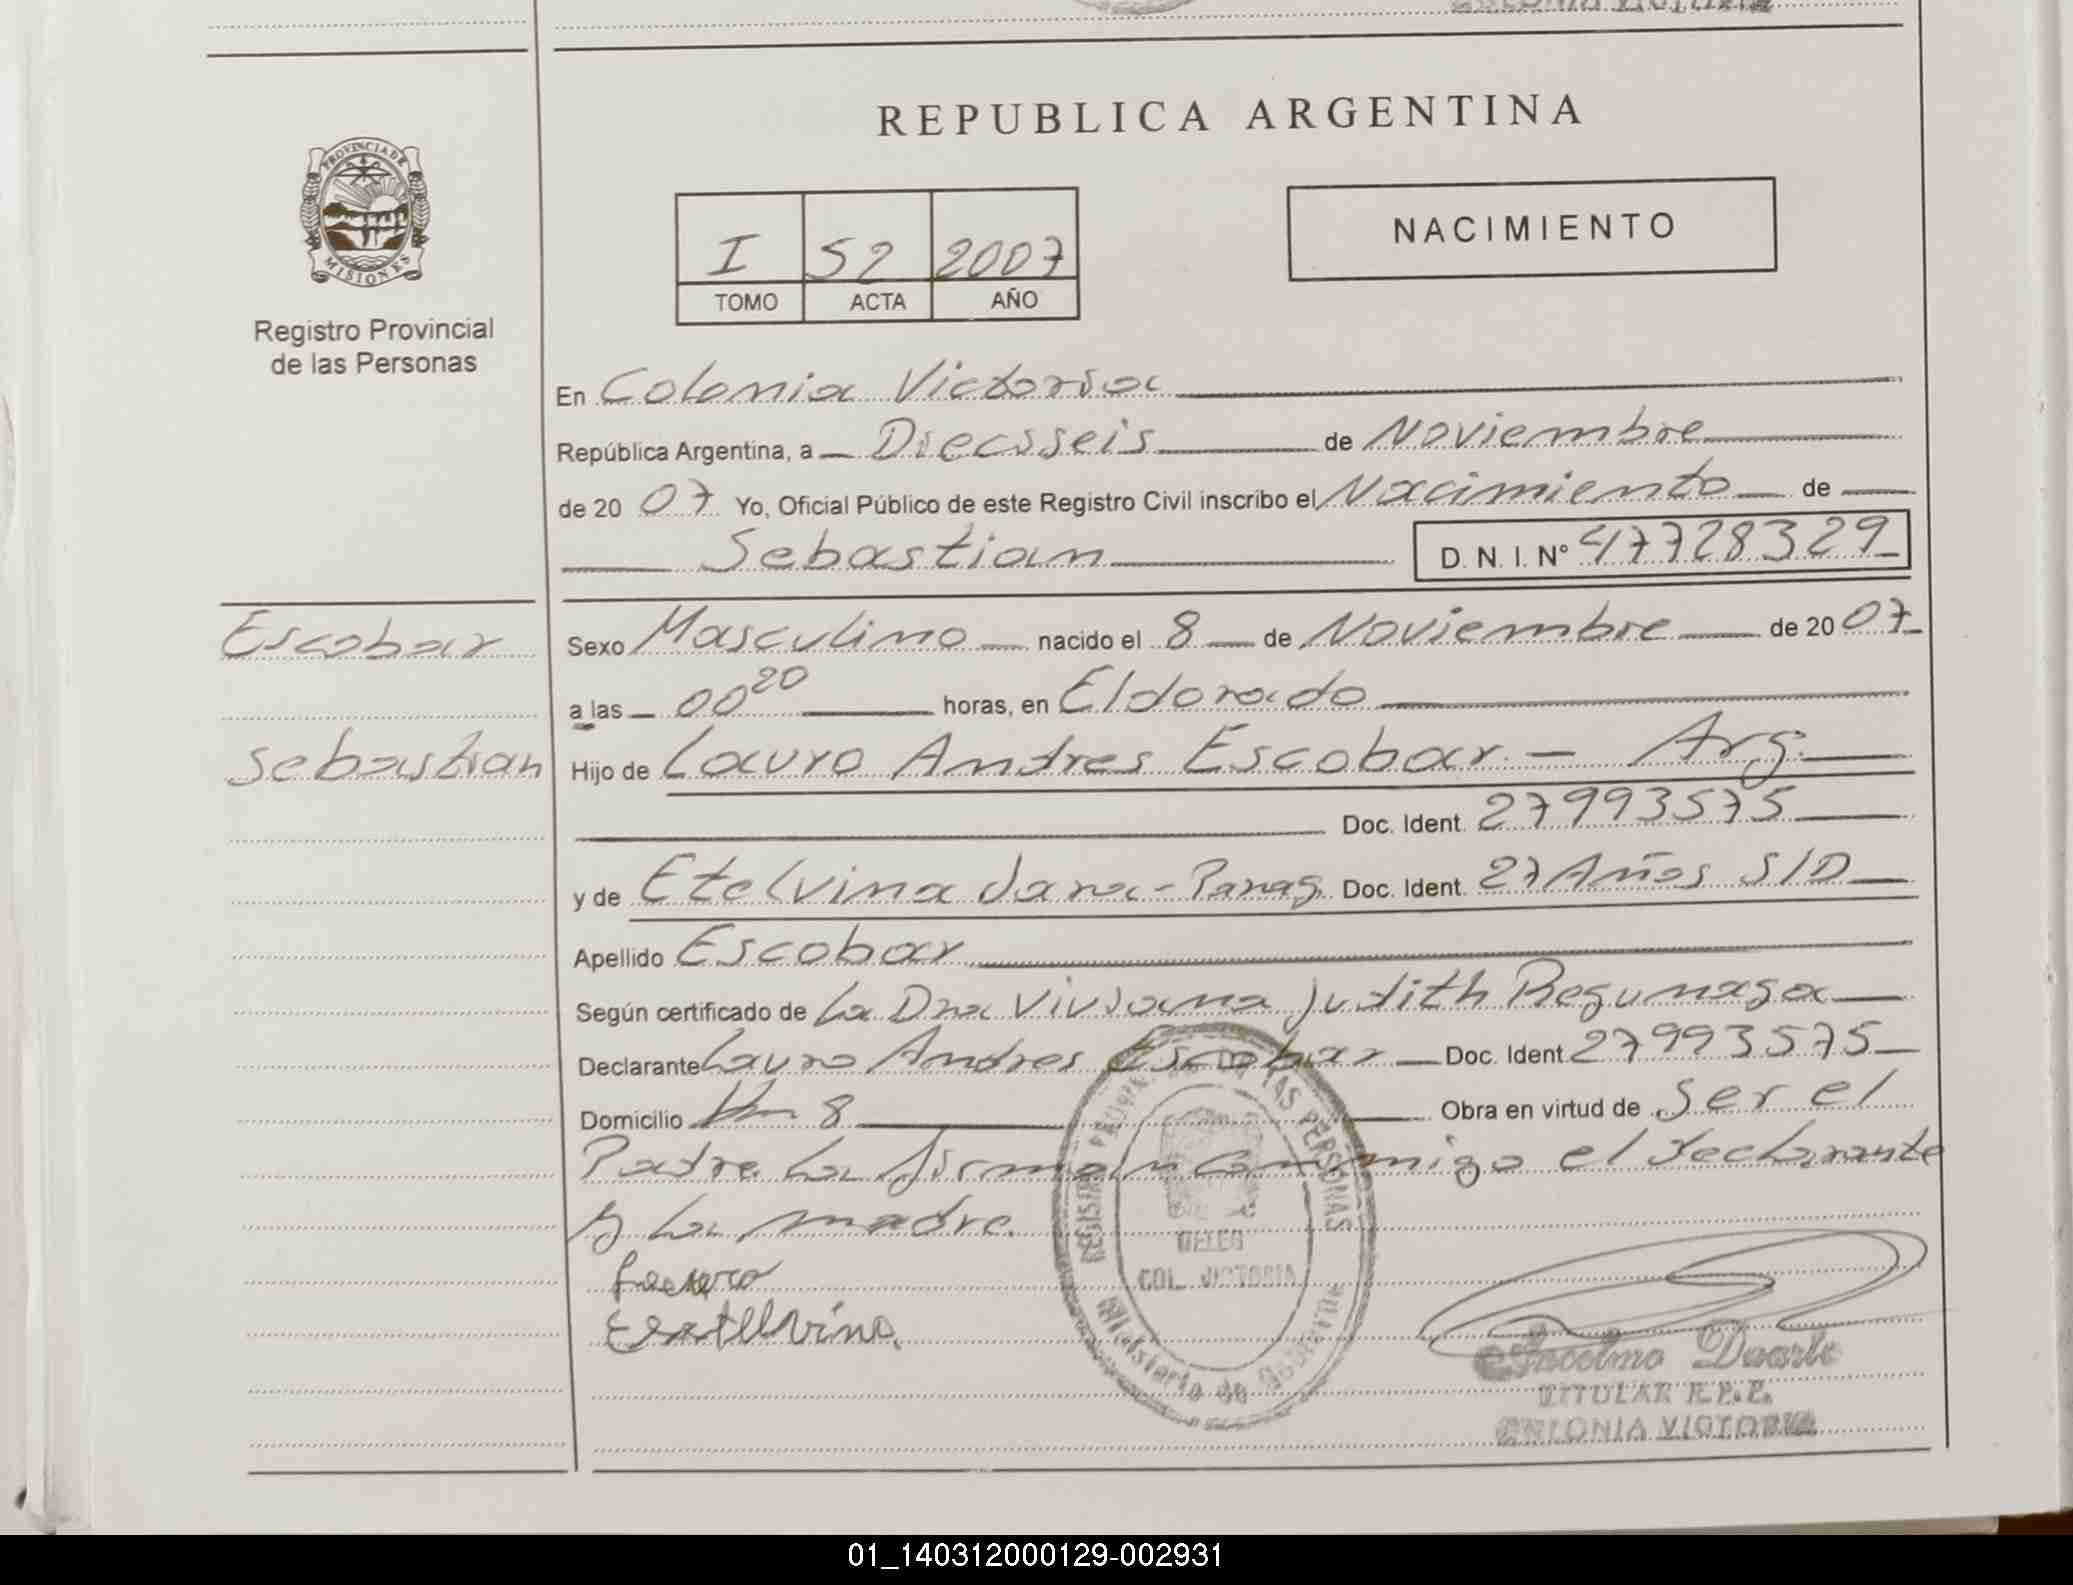 REPUBLICA ARGENTINA
PROVINCIA DE
MISIONES
Registro Provincial
de las Personas
I 52 2007
TOMO ACTA AÑO
NACIMIENTO
En Colonia Victoria
República Argentina, a Diecisseis de Noviembre
de 20 07 Yo, Oficial Público de este Registro Civil inscribo el Nacimiento de
Sebastian D. N. I. N° 47728329
Escobar
Sebastian
Sexo Masculino nacido el 8 de Noviembre de 20 07
a las 00 20 horas, en Eldorado
Hijo de Lauro Andres Escobar - Arg.
Doc. Ident. 27993575
y de Etelvina Jara - Parag. Doc. Ident. 27 Años S/D
Apellido Escobar
Según certificado de La Dra Viviana Judith Regunaga
Declarante Lauro Andres Escobar Doc. Ident 27993575
Domicilio Km 8 Obra en virtud de Ser el
Padre La firman Conmigo el declarante
y La madre.
REGISTRO PROVIN. DE LAS PERSONAS
DELEG
COL. VICTORIA
Ministerio de Gobierno
Duarte
TITULAR R.P.P.
COLONIA VICTORIA
01_140312000129-002931